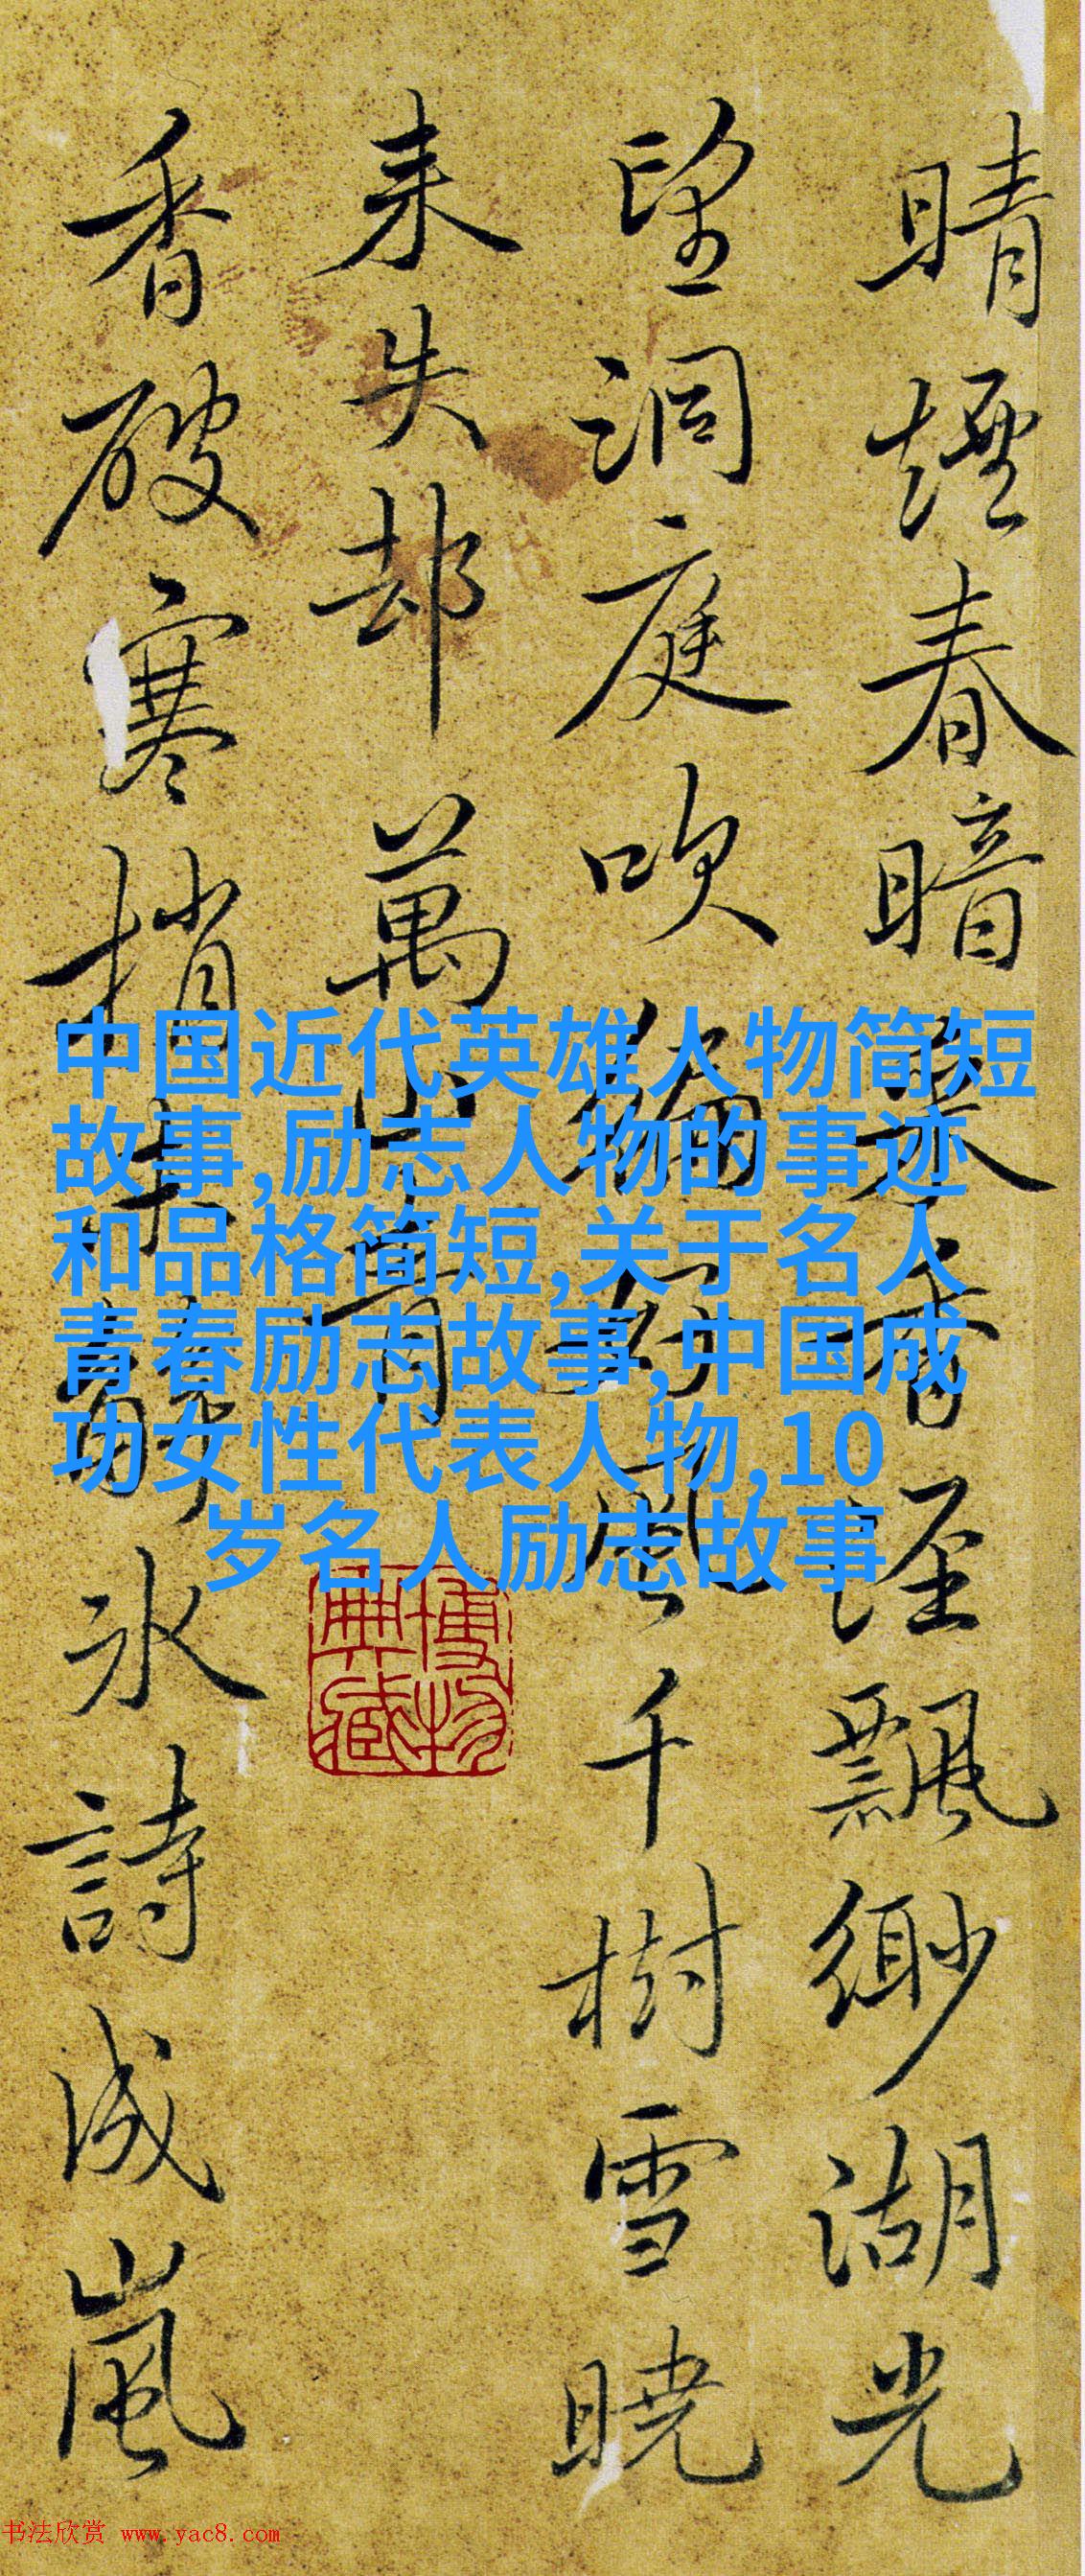 晴煙春暗香飄緲湖光
望洞庭吹風千樹雪曉
来失却萬山青
香破寒梢冰詩成嵐
中国近代英雄人物简短
故事,励志人物的事迹
和品格简短,关于名人
青春励志故事,中国成
功女性代表人物,10
岁名人励志故事
博物
典藏
书法欣赏 www.yac8.com